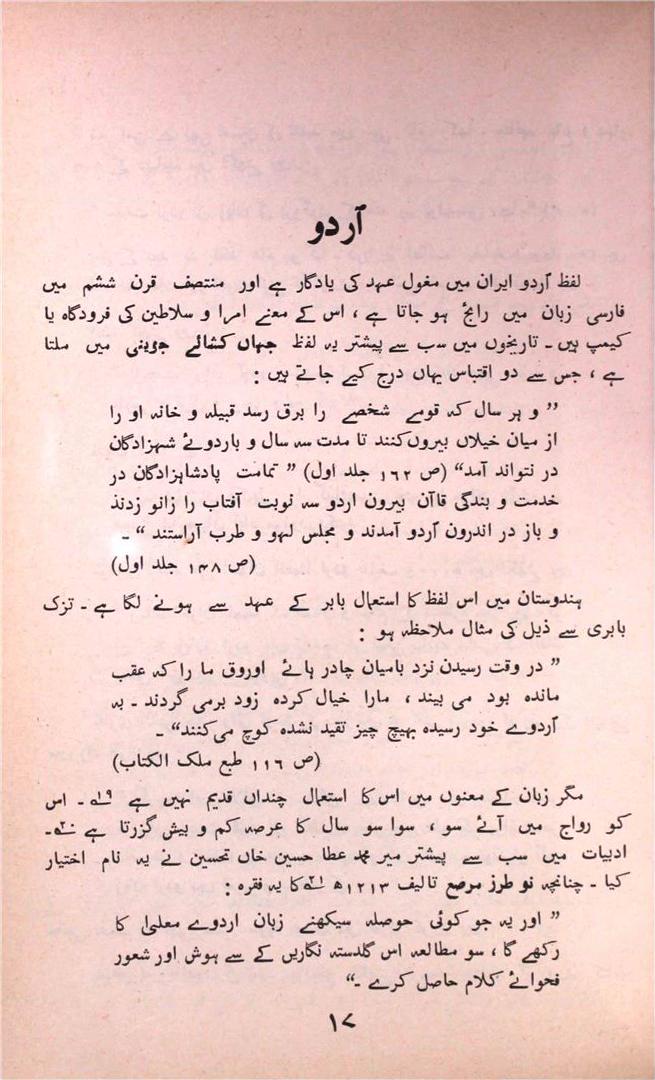 آردو
لفظ آردو ایران میں مغول عہد کی یادگار ہے اور منتصف قرن ششم میں
فارسی زبان میں رائج ہو جاتا ہے ، اس کے معنے امرا و سلاطین کی فرودگاہ یا
کیمپ ہیں ۔ تاریخوں میں سب سے پیشتر یہ لفظ جہاں کشائے جوینی میں ملتا
ہے ، جس سے دو اقتباس یہاں درج کیے جاتے ہیں :
” و ہر سال کہ قومے شخصے را برق رسد قبیلہ و خانہ او را
از میان خیلاں بیروں کنند تا مدت سہ سال و باردوئے شہزادگان
در نتواند آمد“ (ص ۱۶۲ جلد اول) ” تمامت پادشاہزادگان در
خدمت و بندگی قاآن بیرون اردو سہ نوبت آفتاب را زانو زدند
و باز در اندرون آردو آمدند و مجلس لہو و طرب آراستند “ ۔
(ص ۱۴۸ جلد اول)
ہندوستان میں اس لفظ کا استعمال بابر کے عہد سے ہونے لگا ہے ۔ تزک
بابری سے ذیل کی مثال ملاحظہ ہو :
” در وقت رسیدن نزد بامیان چادر ہائے اوروق ما را کہ عقب
ماندہ بود می بیند ، مارا خیال کردہ زود برمی گردند ۔ بہ
آردوے خود رسیدہ بہیچ چیز تقید نشدہ کوچ می کنند“ ۔
(ص ۱۱۶ طبع ملک الکتاب)
مگر زبان کے معنوں میں اس کا استعمال چنداں قدیم نہیں ہے ۱۹؎ ۔ اس
کو رواج میں آئے سو ، سوا سو سال کا عرصہ کم و بیش گزرتا ہے ۲۰؎ ۔
ادبیات میں سب سے پیشتر میر محمد عطا حسین خاں تحسین نے یہ نام اختیار
کیا ۔ چنانچہ نو طرز مرصع تالیف ۱۲۱۳ھ ۲۱؎ کا یہ فقرہ :
” اور یہ جو کوئی حوصلہ سیکھنے زبان اردوے معلیٰ کا
رکھے گا ، سو مطالعہ اس گلدستہ نگاریں کے سے ہوش اور شعور
فحوائے کلام حاصل کرے ۔“
۱۷